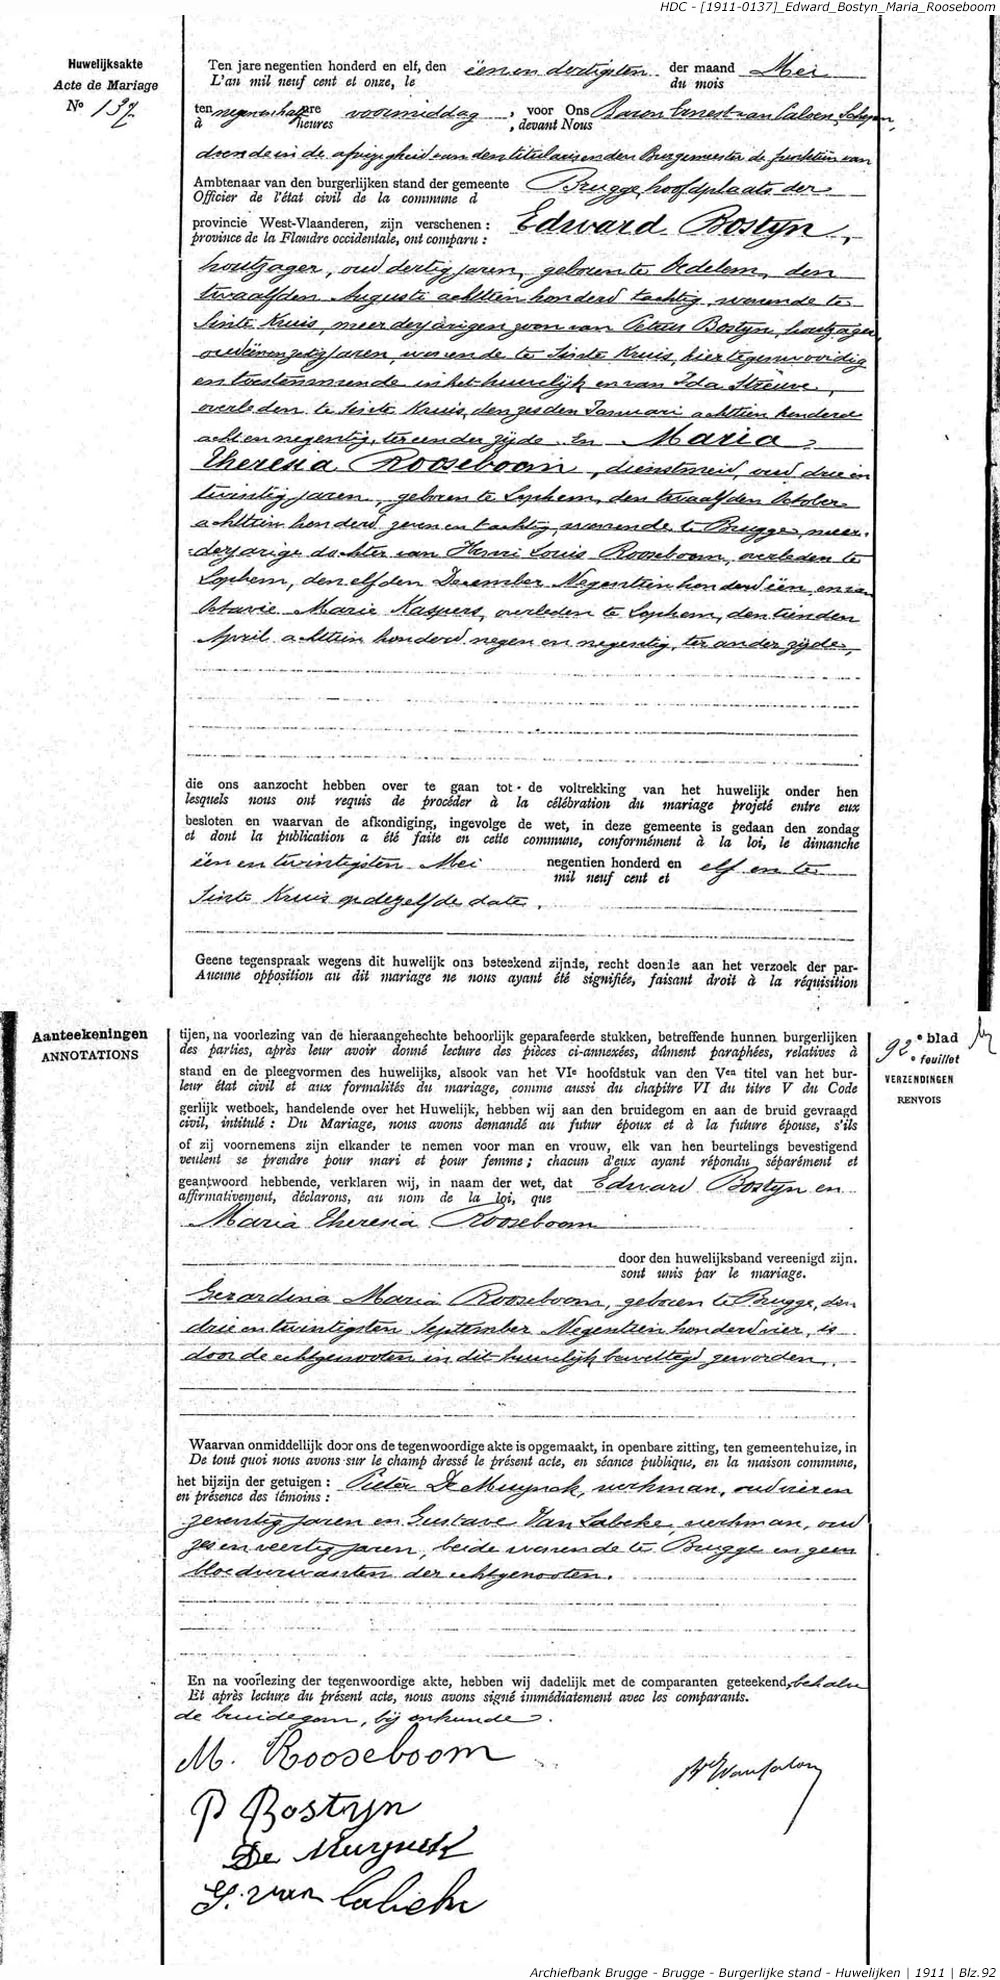 HDC - [1911-0137]_Edward_Bostyn_Maria_Rooseboom
Huwelijksakte
Acte de Mariage
No 137
Ten jare negentien honderd en elf, den één en dertigsten der maand Mei
L'an mil neuf cent et onze, le du mois
ten negen en half ure voormiddag, voor Ons Baron Ernest van Caloen, Schepen,
à heures , devant Nous
doende in de afwezigheid van den titularis en den Burgemeester de functiën van
Ambtenaar van den burgerlijken stand der gemeente Brugge, hoofdplaats der
Officier de l'état civil de la commune d
provincie West-Vlaanderen, zijn verschenen : Edward Bostyn,
province de la Flandre occidentale, ont comparu :
houtzager, oud dertig jaren, geboren te Oedelem, den
twaalfden Augusti achttien honderd tachtig, wonende te
Sinte Kruis, meerderjarigen zoon van Petrus Bostyn, houtzager,
oud één en zestig jaren, wonende te Sinte Kruis, hier tegenwoordig
en toestemmende in het huwelijk en van Ida Streuve,
overleden te Sinte Kruis, den zesden Januari achttien honderd
acht en negentig, ter eender zijde. En Maria
Theresia Rooseboom, dienstmeid, oud drie en
twintig jaren, geboren te Lophem, den twaalfden October
achttien honderd zeven en tachtig, wonende te Brugge, meer-
derjarige dochter van Henri Louis Rooseboom, overleden te
Lophem, den elfden December Negentien honderd één, en van
Octavie Marie Kaspers, overleden te Lophem, den tienden
April achttien honderd negen en negentig, ter ander zijde,
die ons aanzocht hebben over te gaan tot de voltrekking van het huwelijk onder hen
lesquels nous ont requis de procéder à la célébration du mariage projeté entre eux
besloten en waarvan de afkondiging, ingevolge de wet, in deze gemeente is gedaan den zondag
et dont la publication a été faite en cette commune, conformément à la loi, le dimanche
één en twintigsten Mei negentien honderd en elf en te
mil neuf cent et
Sinte Kruis op dezelfde date.
Geene tegenspraak wegens dit huwelijk ons beteekend zijnde, recht doende aan het verzoek der par-
Aucune opposition au dit mariage ne nous ayant été signifiée, faisant droit à la réquisition
Aanteekeningen
ANNOTATIONS
92e blad
e feuillet
VERZENDINGEN
RENVOIS
tijen, na voorlezing van de hieraangehechte behoorlijk geparafeerde stukken, betreffende hunnen burgerlijken
des parties, après leur avoir donné lecture des pièces ci-annexées, dûment paraphées, relatives à
stand en de pleegvormen des huwelijks, alsook van het VIe hoofdstuk van den Ven titel van het bur-
leur état civil et aux formalités du mariage, comme aussi du chapitre VI du titre V du Code
gerlijk wetboek, handelende over het Huwelijk, hebben wij aan den bruidegom en aan de bruid gevraagd
civil, intitulé : Du Mariage, nous avons demandé au futur époux et à la future épouse, s'ils
of zij voornemens zijn elkander te nemen voor man en vrouw, elk van hen beurtelings bevestigend
veulent se prendre pour mari et pour femme ; chacun d'eux ayant répondu séparément et
geantwoord hebbende, verklaren wij, in naam der wet, dat Edward Bostyn en
affirmativement, déclarons, au nom de la loi, que
Maria Theresia Rooseboom
door den huwelijksband vereenigd zijn.
sont unis par le mariage.
Gerardina Maria Rooseboom, geboren te Brugge, den
drie en twintigsten September Negentien honderd vier, is
door de echtgenooten in dit huwelijk gewettigd geworden.
Waarvan onmiddelijk door ons de tegenwoordige akte is opgemaakt, in openbare zitting, ten gemeentehuize, in
De tout quoi nous avons sur le champ dressé le présent acte, en séance publique, en la maison commune,
het bijzijn der getuigen : Pieter De Muynck, werkman, oud vier en
en présence des témoins :
zeventig jaren en Gustave Van Labeke, werkman, oud
zes en veertig jaren, beide wonende te Brugge en geen
bloedverwanten der echtgenooten.
En na voorlezing der tegenwoordige akte, hebben wij dadelijk met de comparanten geteekend, behalve
Et après lecture du présent acte, nous avons signé immédiatement avec les comparants.
de bruidegom, bij onkunde.
M. Rooseboom
P Bostyn
De Muynck
G. van Labeke
Archiefbank Brugge - Brugge - Burgerlijke stand - Huwelijken | 1911 | Blz.92